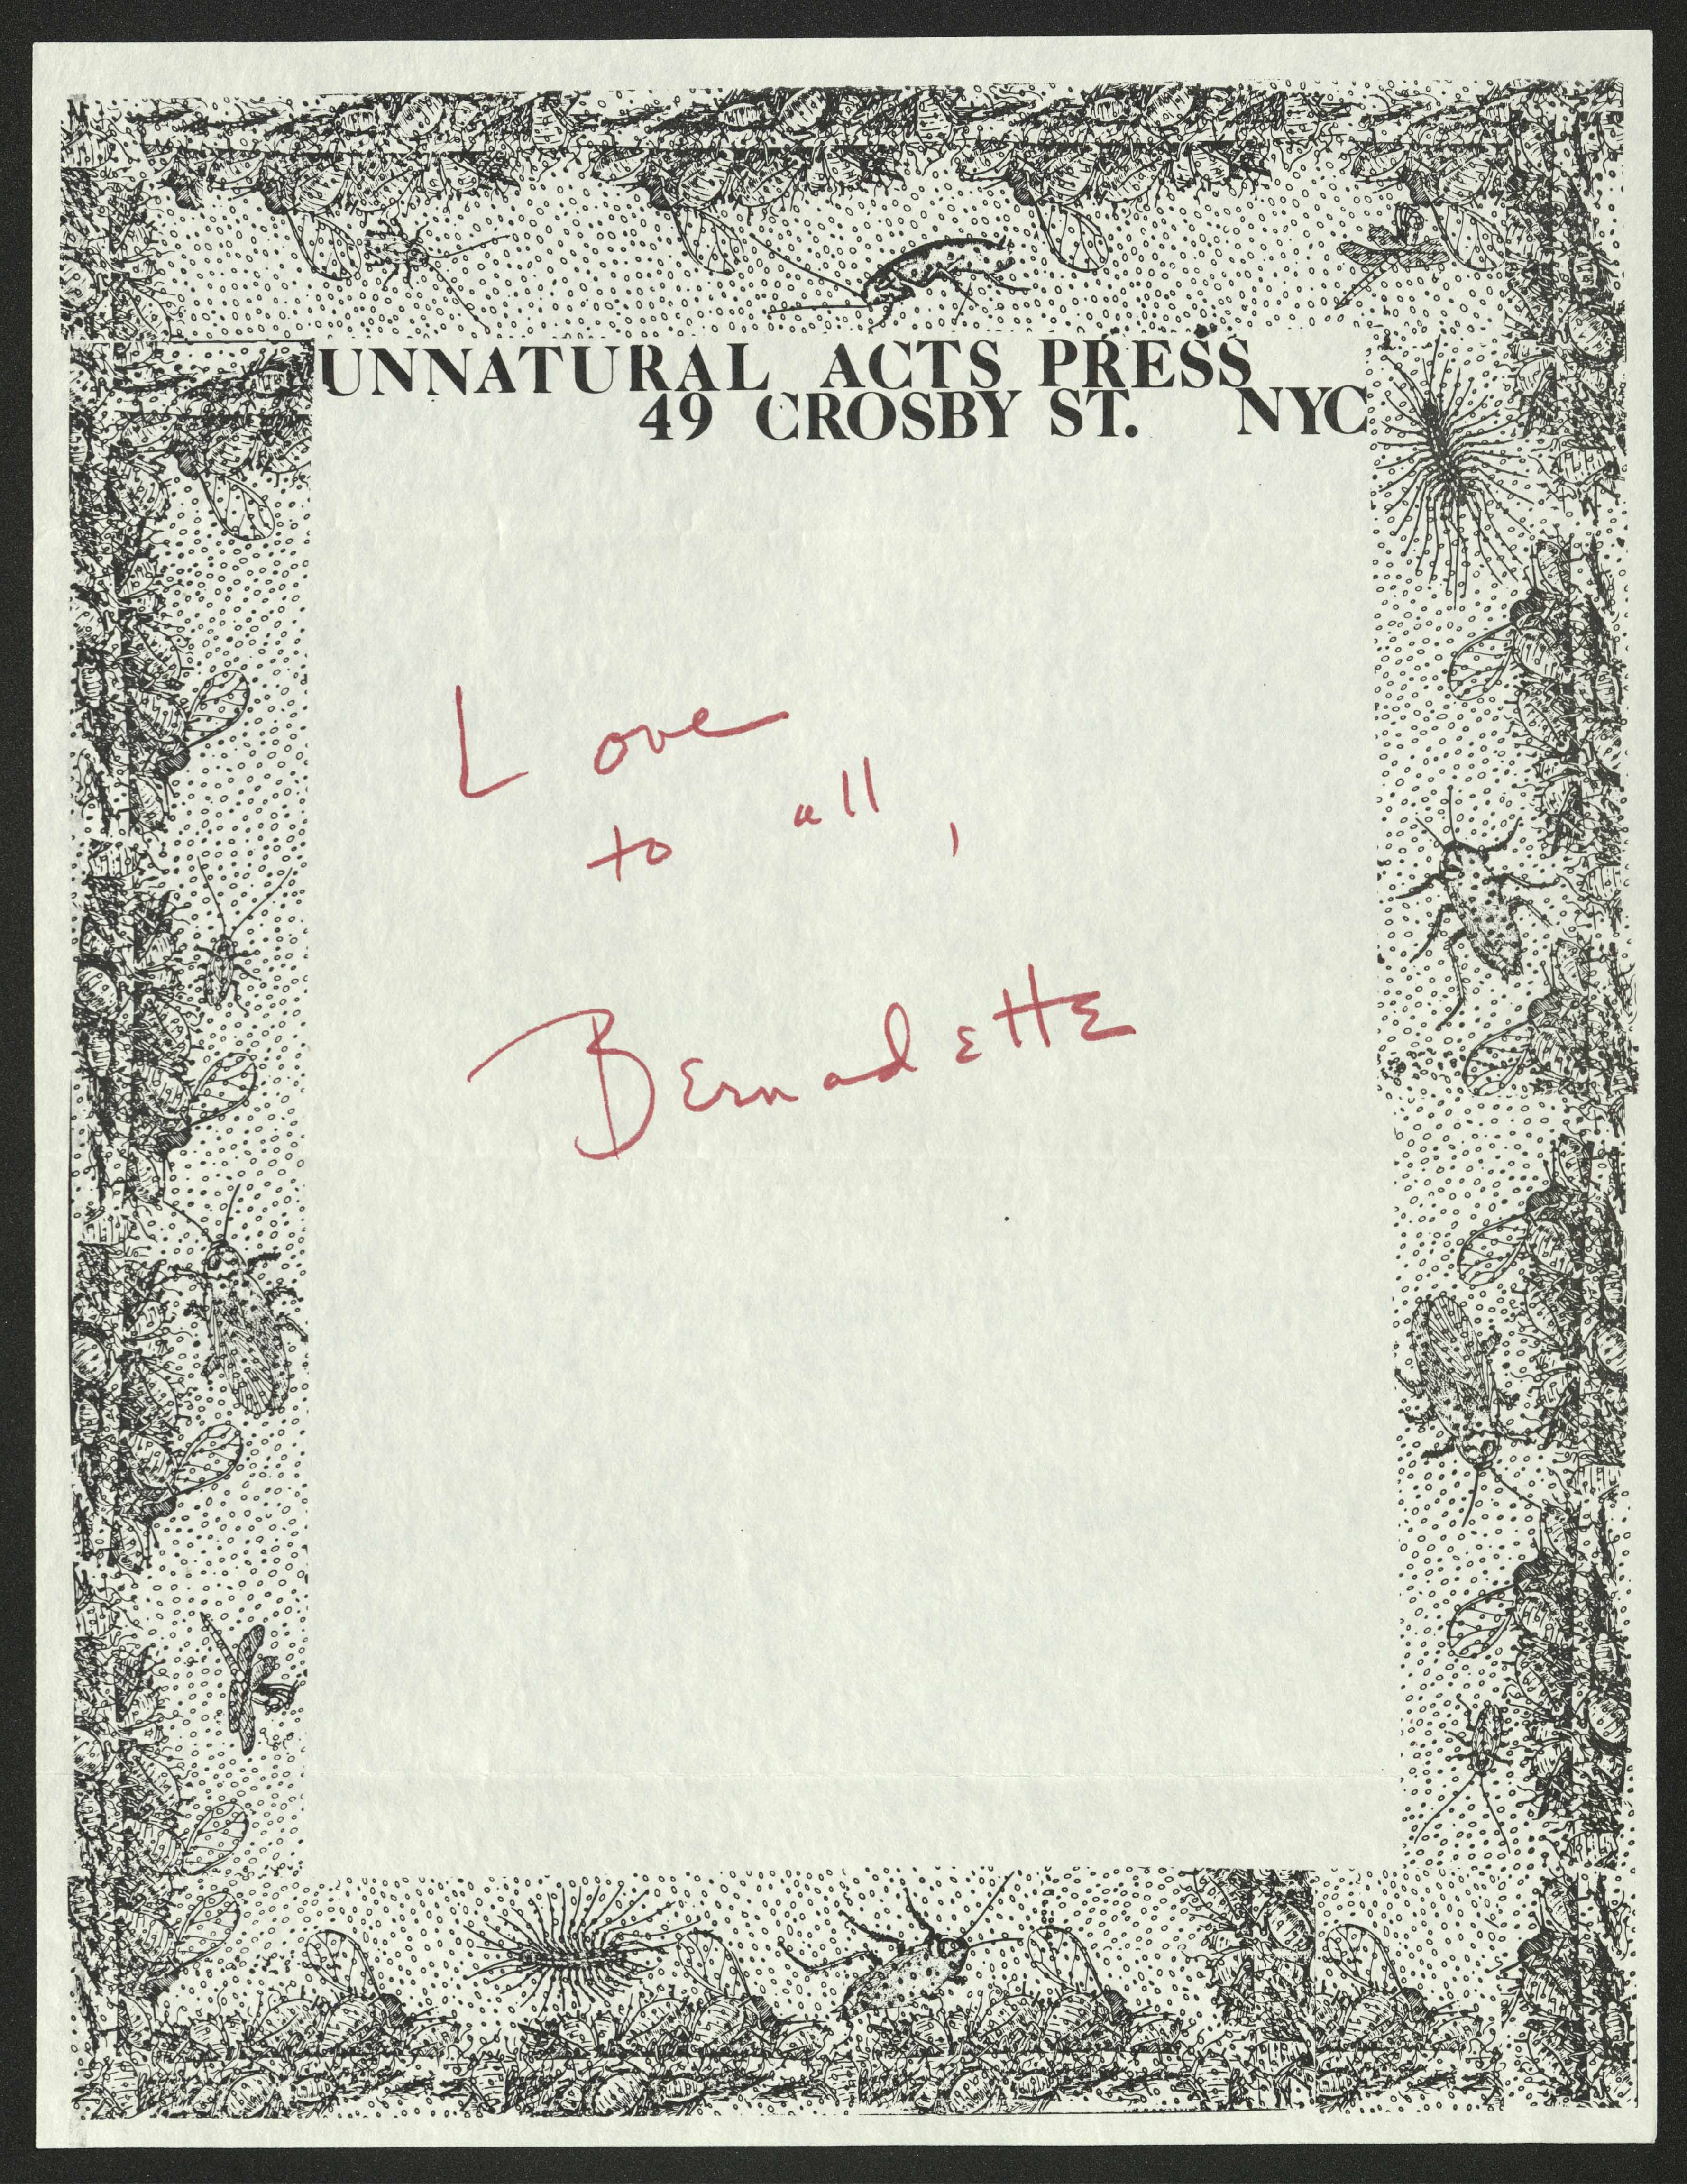 UNNATURAL ACTS PRESS
49 CROSBY ST. NYC
Love
to all,
Bernadette